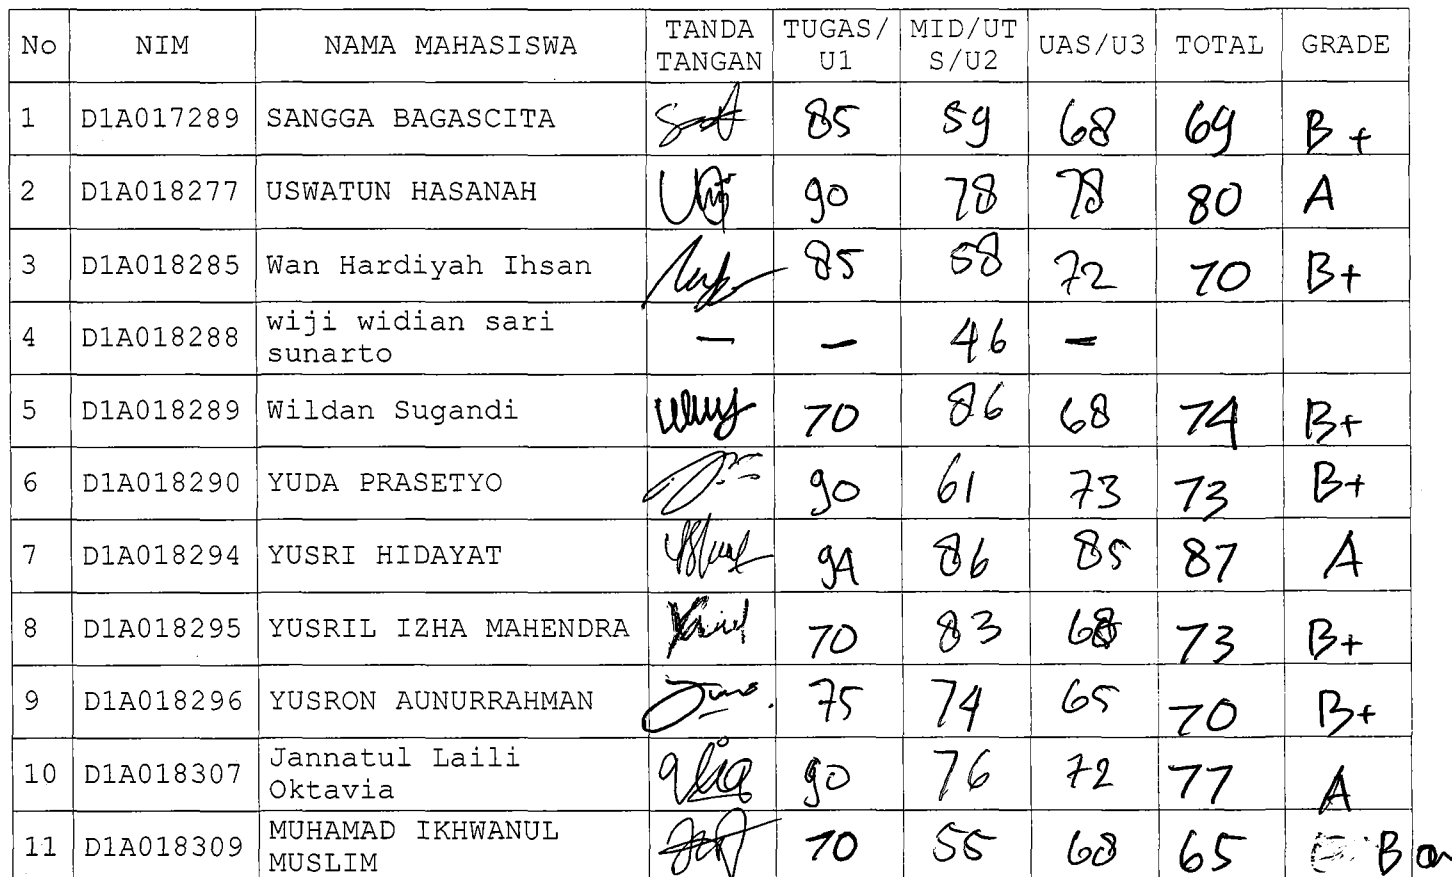 No NIM NAMA MAHASISWA TANDA TANGAN TUGAS/U1 MID/UTS/U2 UAS/U3 TOTAL GRADE
1 D1A017289 SANGGA BAGASCITA 85 59 68 69 B+
2 D1A018277 USWATUN HASANAH 90 78 78 80 A
3 D1A018285 Wan Hardiyah Ihsan 85 58 72 70 B+
4 D1A018288 wiji widian sari sunarto — — 46 —
5 D1A018289 Wildan Sugandi 70 86 68 74 B+
6 D1A018290 YUDA PRASETYO 90 61 73 73 B+
7 D1A018294 YUSRI HIDAYAT 94 86 85 87 A
8 D1A018295 YUSRIL IZHA MAHENDRA 70 83 68 73 B+
9 D1A018296 YUSRON AUNURRAHMAN 75 74 65 70 B+
10 D1A018307 Jannatul Laili Oktavia 90 76 72 77 A
11 D1A018309 MUHAMAD IKHWANUL MUSLIM 70 55 68 65 B